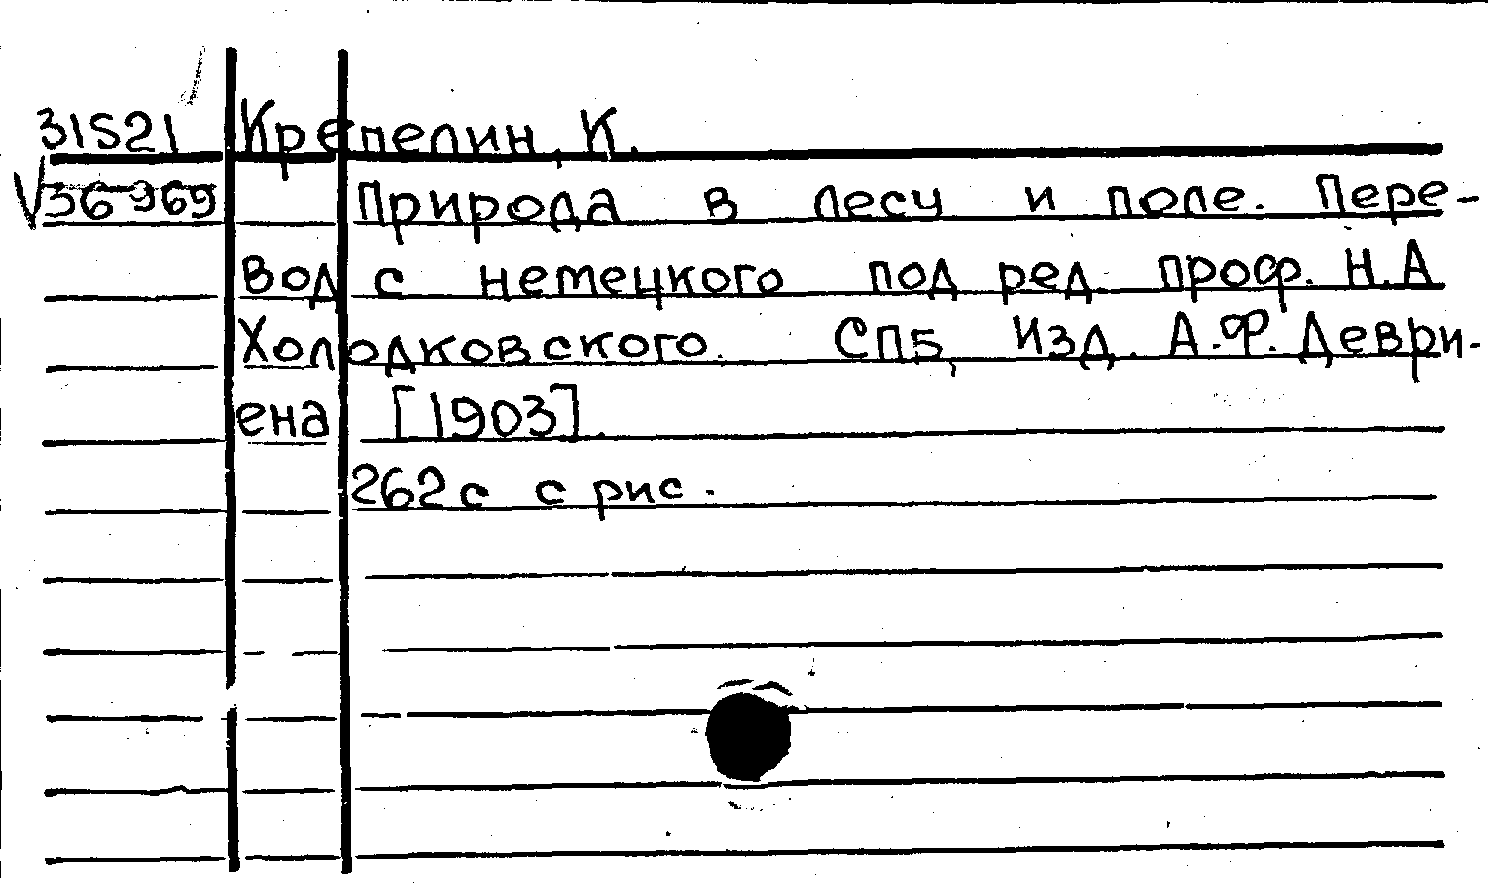 31521 Крепелин, К.
√36969 Природа в лесу и поле. Пере-
вод с немецкого под ред. проф. Н.А.
Холодковского. СПБ, Изд. А.Ф. Деври-
ена [1903].
262 с с рис.